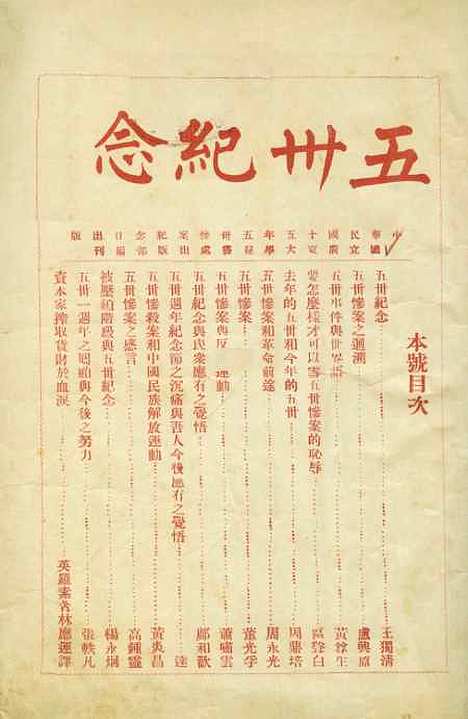 五卅紀念
中華民國十五年五卅慘案紀念日出版
國立廣東大學秘書處出版部編刊
本號目次
五卅紀念……王獨清
五卅慘案之迴溯……盧興原
五卅事件與世界語……黃尊生
要怎麼樣才可以雪五卅慘案的恥辱……區聲白
去年的五卅和今年的五卅……周鼎培
五卅慘案和革命前途……周永光
五卅慘案……董光孚
五卅慘案與反 運動……蕭嘯雲
五卅紀念與民衆應有之覺悟……鄺和歡
五卅週年紀念節之沉痛與吾人今後應有之覺悟……達
五卅慘殺案和中國民族解放運動……黃炎昌
五卅慘案之感言……高鍾靈
被壓迫階級與五卅紀念……楊永炯
五卅一週年之回顧與今後之努力……張軼凡
資本家搾取貨財於血淚……英羅素著林應運譯